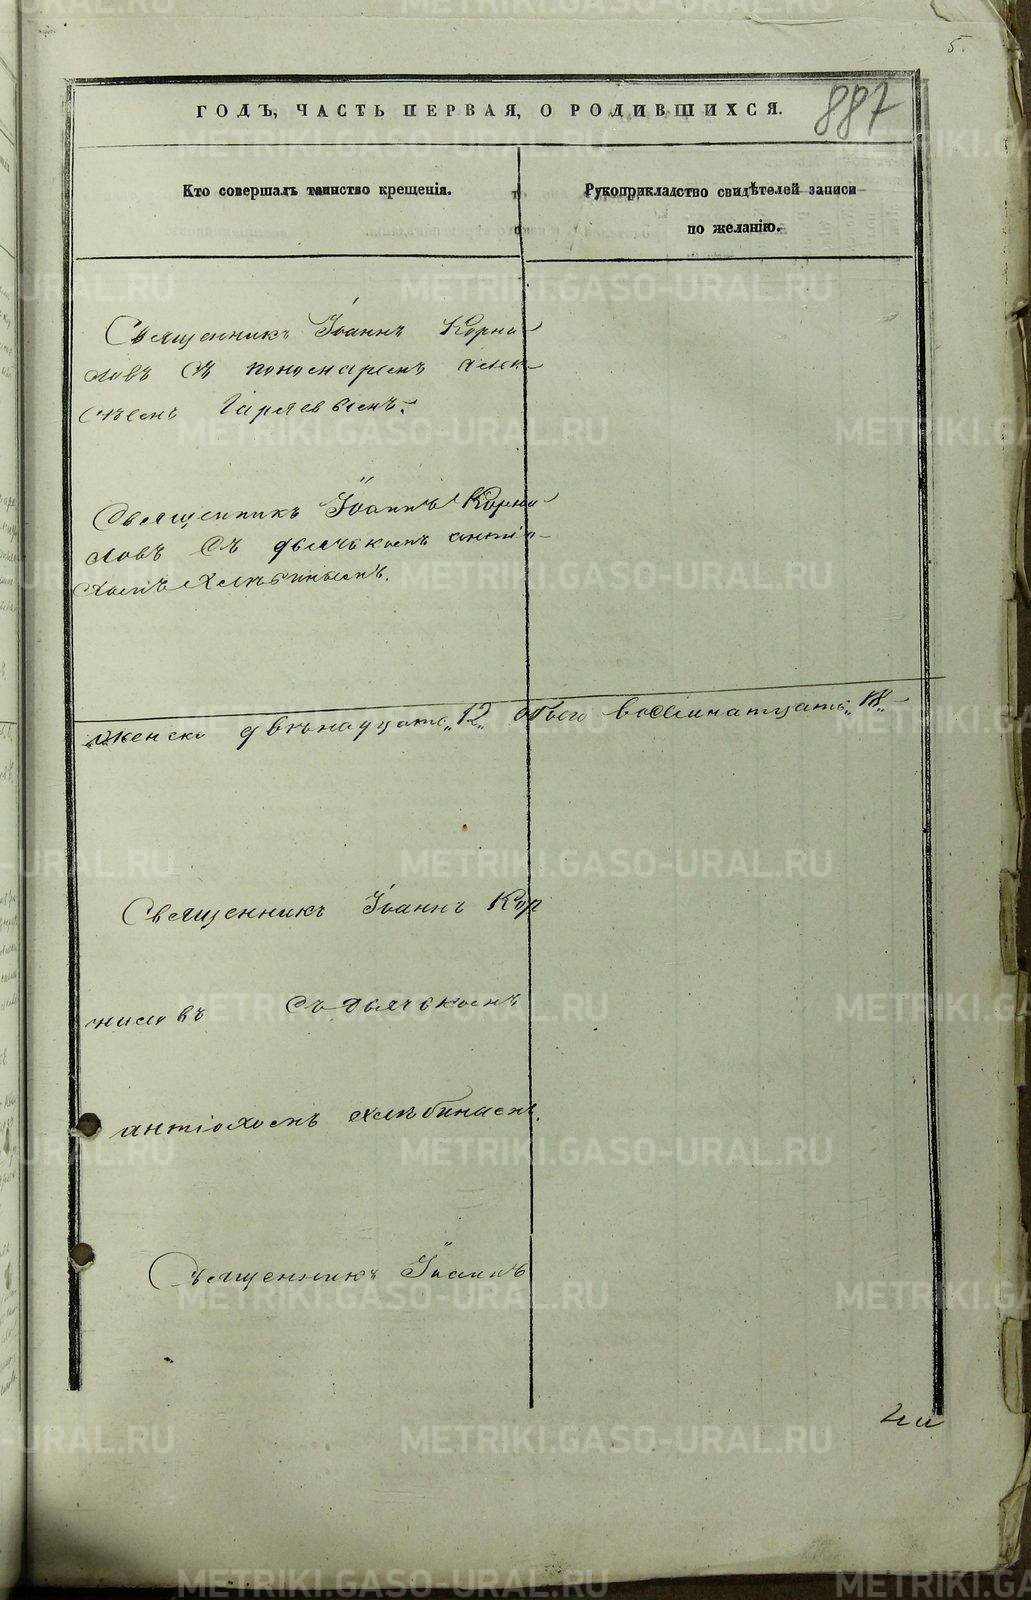 5.
887
ГОДЪ, ЧАСТЬ ПЕРВАЯ, О РОДИВШИХСЯ.
Кто совершалъ таинство крещенія.
Рукоприкладство свидѣтелей записи
по желанію.
Священникъ Іоаннъ Корни
ловъ Съ пономаремъ Алек
сѣемъ Гаряевымъ.
Священникъ Іоаннъ Корни
ловъ Съ дьячькомъ Антіо
хомъ Хлѣбинымъ.
женска двѣнадцать „12„ обоего восемнатцать „18„
Священникъ Іоаннъ Кор
ниловъ Съ дьячькомъ
Антіохомъ Хлѣбинымъ.
Священникъ Іоаннъ
METRIKI.GASO-URAL.RU